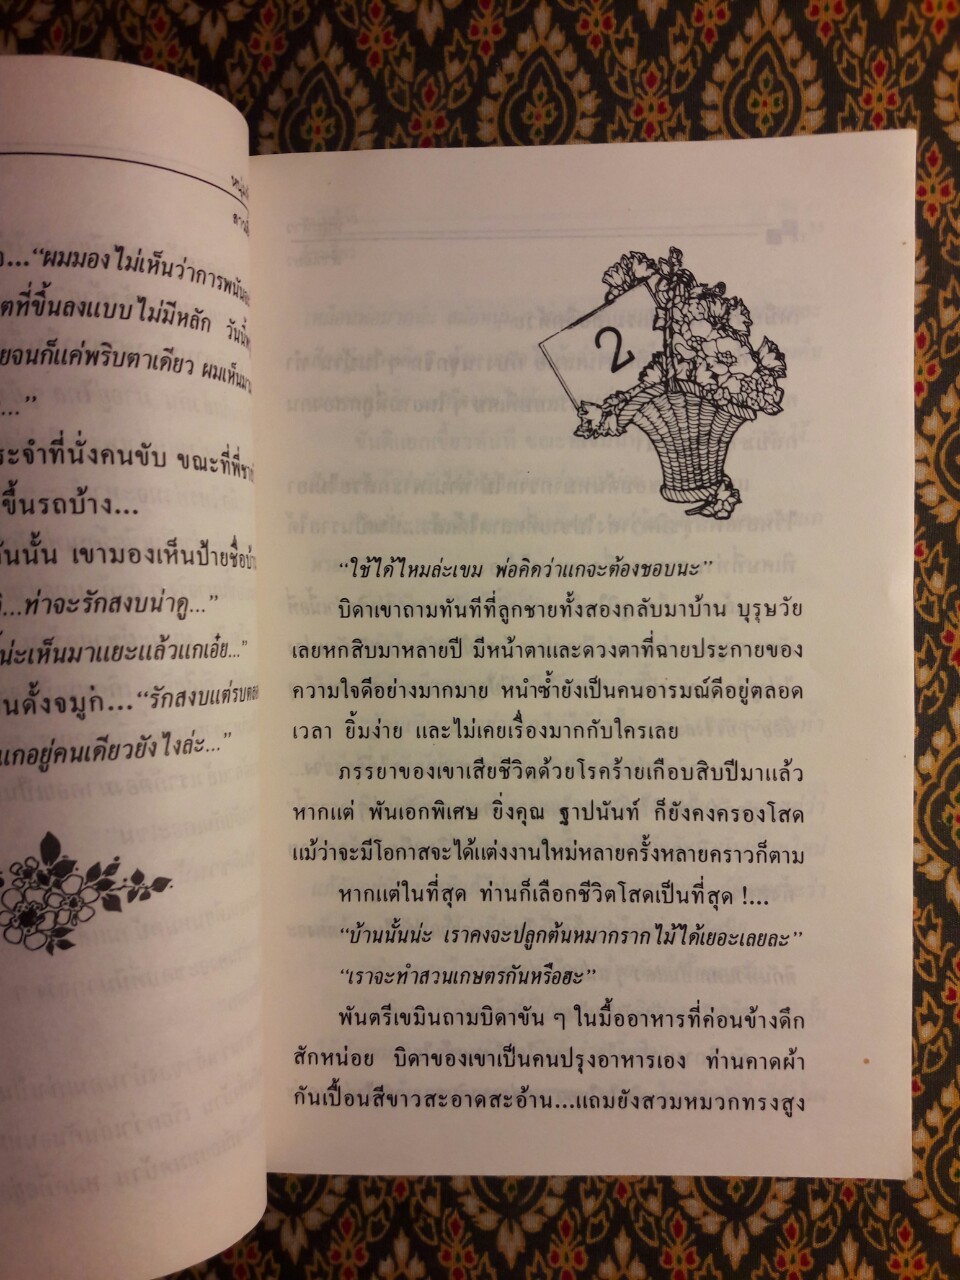 ...“ผมมองไม่เห็นว่าการพนัน
ตที่ขึ้นลงแบบไม่มีหลัก วันนี้
ยจนก็แค่พริบตาเดียว ผมเห็นมา
...”
ระจำที่นั่งคนขับ ขณะที่พี่ชาย
ขึ้นรถบ้าง...
นั้น เขามองเห็นป้ายชื่อบ้าน
...ท่าจะรักสงบน่าดู...”
น่ะเห็นมาแยะแล้วแกเอ๋ย...”
นดั้งจมูก...“รักสงบแต่รบตลอด
แกอยู่คนเดียวยังไงล่ะ...”
2
“ใช้ได้ไหมล่ะเขม พ่อคิดว่าแกจะต้องชอบนะ”
บิดาเขาถามทันทีที่ลูกชายทั้งสองกลับมาบ้าน บุรุษวัย
เลยหกสิบมาหลายปี มีหน้าตาและดวงตาที่ฉายประกายของ
ความใจดีอย่างมากมาย หนำซ้ำยังเป็นคนอารมณ์ดีอยู่ตลอด
เวลา ยิ้มง่าย และไม่เคยเรื่องมากกับใครเลย
ภรรยาของเขาเสียชีวิตด้วยโรคร้ายเกือบสิบปีมาแล้ว
หากแต่ พันเอกพิเศษ ยิ่งคุณ ฐาปนันท์ ก็ยังคงครองโสด
แม้ว่าจะมีโอกาสจะได้แต่งงานใหม่หลายครั้งหลายคราวก็ตาม
หากแต่ในที่สุด ท่านก็เลือกชีวิตโสดเป็นที่สุด !...
“บ้านนั้นน่ะ เราคงจะปลูกต้นหมากรากไม้ได้เยอะเลยละ”
“เราจะทำสวนเกษตรกันหรือฮะ”
พันตรีเขมินถามบิดาขัน ๆ ในมื้ออาหารที่ค่อนข้างดึก
สักหน่อย บิดาของเขาเป็นคนปรุงอาหารเอง ท่านคาดผ้า
กันเปื้อนสีขาวสะอาดสะอ้าน...แถมยังสวมหมวกทรงสูง